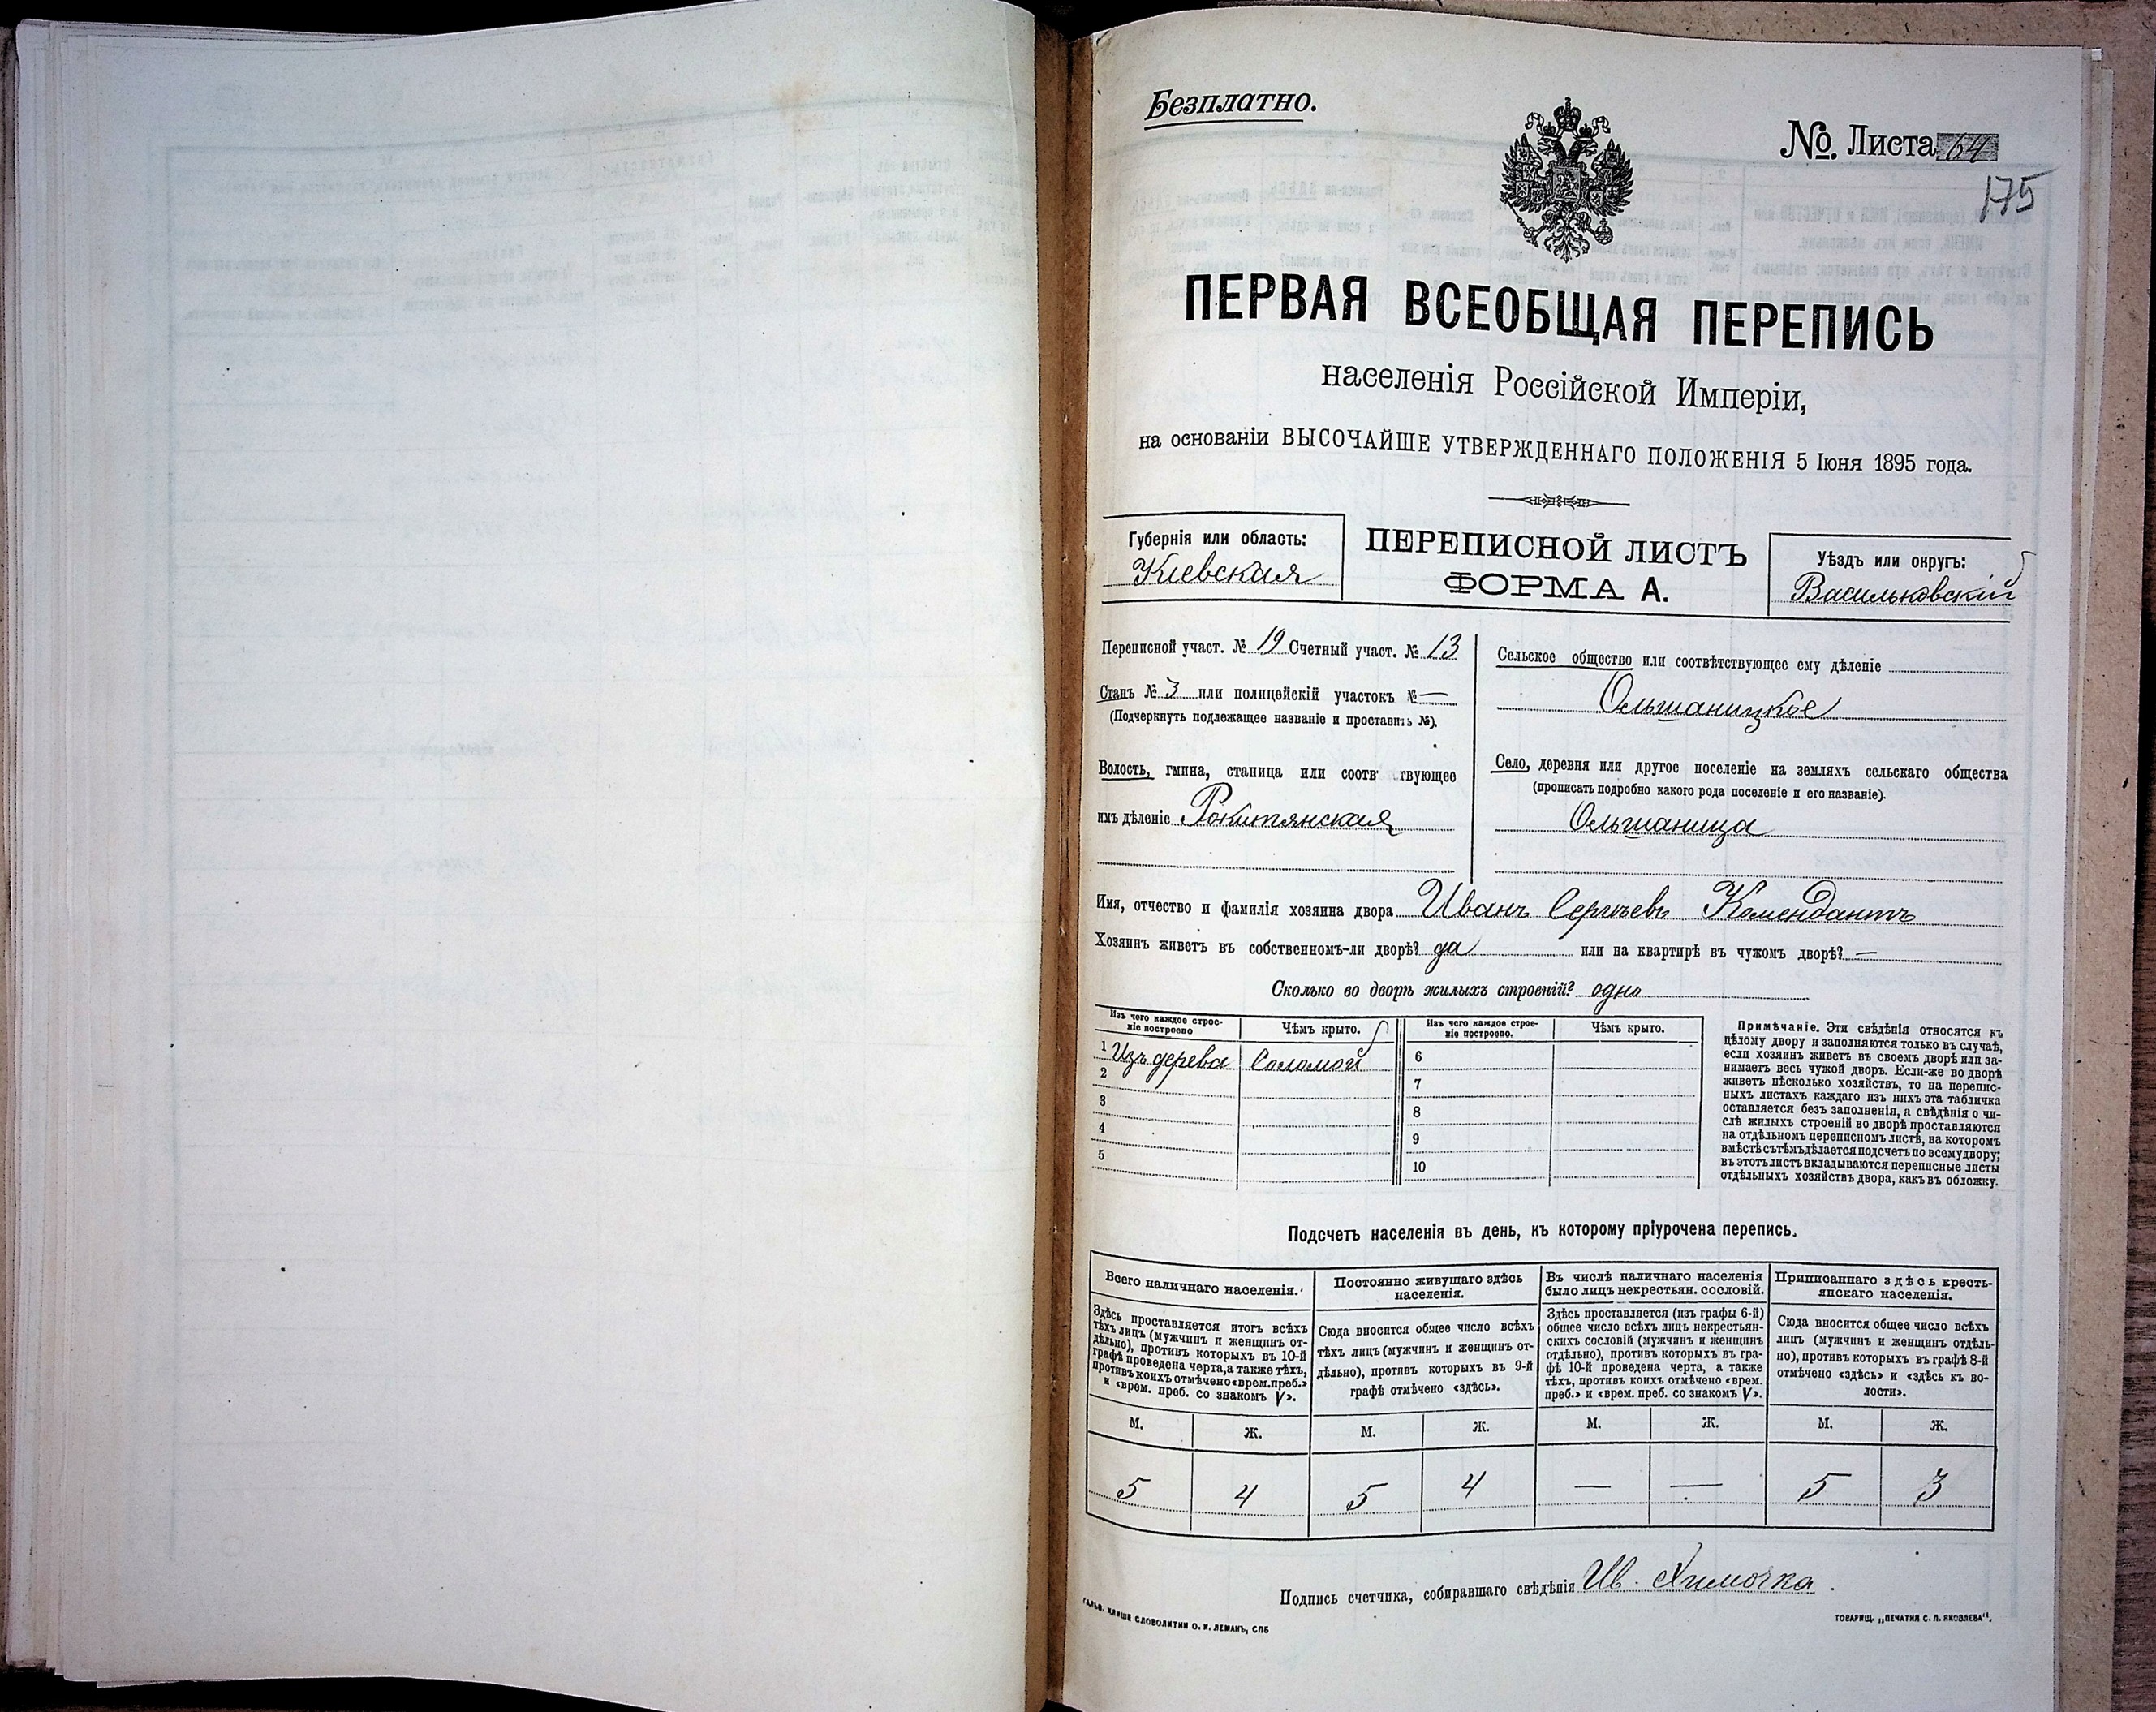 Безплатно.
№. Листа 64
175
ПЕРВАЯ ВСЕОБЩАЯ ПЕРЕПИСЬ
населенія Россійской Имперіи,
на основаніи ВЫСОЧАЙШЕ УТВЕРЖДЕННАГО ПОЛОЖЕНІЯ 5 Іюня 1895 года.
Губернія или область:
Кіевская
ПЕРЕПИСНОЙ ЛИСТЪ
ФОРМА А.
Уѣздъ или округъ:
Васильковскій
Переписной участ. № 19 Счетный участ. № 13
Станъ № 3 или полицейскій участокъ № —
(Подчеркнуть подлежащее названіе и проставить №).
Волость, гмина, станица или соотв твующее
имъ дѣленіе Рокитянская
Сельское общество или соотвѣтствующее ему дѣленіе
Ольшаницкое
Село, деревня или другое поселеніе на земляхъ сельскаго общества
(прописать подробно какого рода поселеніе и его названіе).
Ольшаница
Имя, отчество и фамилія хозяина двора Иванъ Сергѣевъ Комендантъ
Хозяинъ живетъ въ собственномъ-ли дворѣ? да или на квартирѣ въ чужомъ дворѣ? —
Сколько во дворѣ жилыхъ строеній? одно
Изъ чего каждое строе-
ніе построено
Чѣмъ крыто.
Изъ чего каждое строе-
ніе построено.
Чѣмъ крыто.
1 Изъ дерева Соломой 6
2 7
3 8
4 9
5 10
Примѣчаніе. Эти свѣдѣнія относятся къ
цѣлому двору и заполняются только въ случаѣ,
если хозяинъ живетъ въ своемъ дворѣ или за-
нимаетъ весь чужой дворъ. Если-же во дворѣ
живетъ нѣсколько хозяйствъ, то на перепис-
ныхъ листахъ каждаго изъ нихъ эта табличка
оставляется безъ заполненія, а свѣдѣнія о чи-
слѣ жилыхъ строеній во дворѣ проставляются
на отдѣльномъ переписномъ листѣ, на которомъ
вмѣстѣ съ тѣмъ дѣлается подсчетъ по всему двору;
въ этотъ листъ вкладываются переписные листы
отдѣльныхъ хозяйствъ двора, какъ въ обложку.
Подсчетъ населенія въ день, къ которому пріурочена перепись.
Всего наличнаго населенія.
Здѣсь проставляется итогъ всѣхъ
тѣхъ лицъ (мужчинъ и женщинъ от-
дѣльно), противъ которыхъ въ 10-й
графѣ проведена черта, а также тѣхъ,
противъ коихъ отмѣчено «врем. преб.»
и «врем. преб. со знакомъ V».
Постоянно живущаго здѣсь
населенія.
Сюда вносится общее число всѣхъ
тѣхъ лицъ (мужчинъ и женщинъ от-
дѣльно), противъ которыхъ въ 9-й
графѣ отмѣчено «здѣсь».
Въ числѣ наличнаго населенія
было лицъ некрестьян. сословій.
Здѣсь проставляется (изъ графы 6-й)
общее число всѣхъ лицъ некрестьян-
скихъ сословій (мужчинъ и женщинъ
отдѣльно), противъ которыхъ въ гра-
фѣ 10-й проведена черта, а также
тѣхъ, противъ коихъ отмѣчено «врем.
преб.» и «врем. преб. со знакомъ V».
Приписаннаго здѣсь кресть-
янскаго населенія.
Сюда вносится общее число всѣхъ
лицъ (мужчинъ и женщинъ отдѣль-
но), противъ которыхъ въ графѣ 8-й
отмѣчено «здѣсь» и «здѣсь къ во-
лости».
М. Ж. М. Ж. М. Ж. М. Ж.
5 4 5 4 — — 5 3
Подпись счетчика, собиравшаго свѣдѣнія Ив. Химочка.
ГАЛЬВ. КЛИШЕ СЛОВОЛИТНИ О. И. ЛЕМАНЪ, СПБ
ТОВАРИЩ. „ПЕЧАТНЯ С. П. ЯКОВЛЕВА".